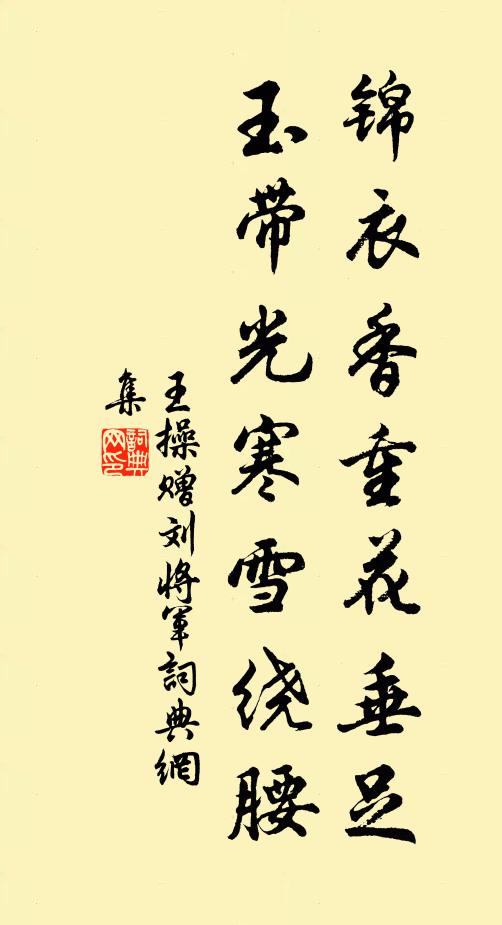 锦衣香重花垂足
玉带光寒雪绕腰
王操赠刘将军詞典網
集
詞典
网印